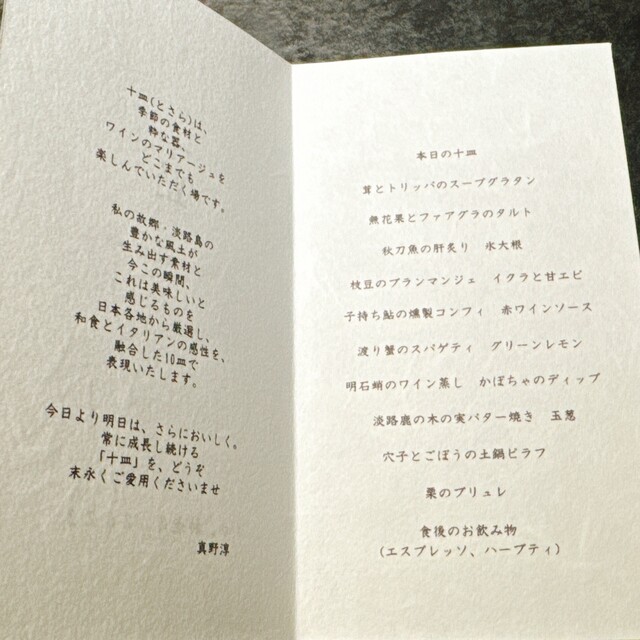 十皿(とさら)は、
季節の食材と
粋な器、
ワインのマリアージュを
どこまでも
楽しんでいただく場です。
私の故郷・淡路島の
豊かな風土が
生み出す素材と
今この瞬間、
これは美味しいと
感じるものを
日本各地から厳選し、
和食とイタリアンの感性を、
融合した10皿で
表現いたします。
今日より明日は、さらにおいしく。
常に成長し続ける
「十皿」を、どうぞ
末永くご愛用くださいませ
真野淳
本日の十皿
茸とトリッパのスープグラタン
無花果とフアグラのタルト
秋刀魚の肝炙り 氷大根
枝豆のブランマンジェ イクラと甘エビ
子持ち鮎の燻製コンフィ 赤ワインソース
渡り蟹のスパゲティ グリーンレモン
明石蛸のワイン蒸し かぼちゃのディップ
淡路鹿の木の実バター焼き 玉葱
穴子とごぼうの土鍋ピラフ
栗のブリュレ
食後のお飲み物
(エスプレッソ、ハーブティ)